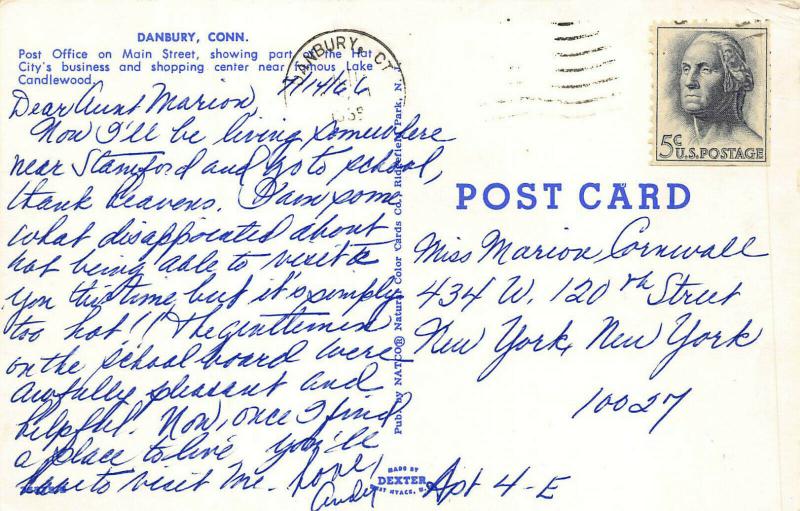 DANBURY, CONN.
Post Office on Main Street, showing part of the Hat
City's business and shopping center near famous Lake
Candlewood.
DANBURY, CT
5c
U.S. POSTAGE
7/14/66
Dear Aunt Marion,
Now I'll be living somewhere
near Stamford and go to school,
thank heavens. I am some
what disappointed about
not being able to visit
you this time but it's simply
too hot!! The gentlemen
on the school board were
awfully pleasant and
helpful. Now, once I find
a place to live you'll
have to visit me. Love,
Andy
Pub. by NATCO® Natural Color Cards Co., Ridgefield Park, N.
POST CARD
Miss Marion Cornwall
434 W. 120th Street
New York, New York
10027
Apt 4-E
MADE BY
DEXTER
WEST NYACK, N.